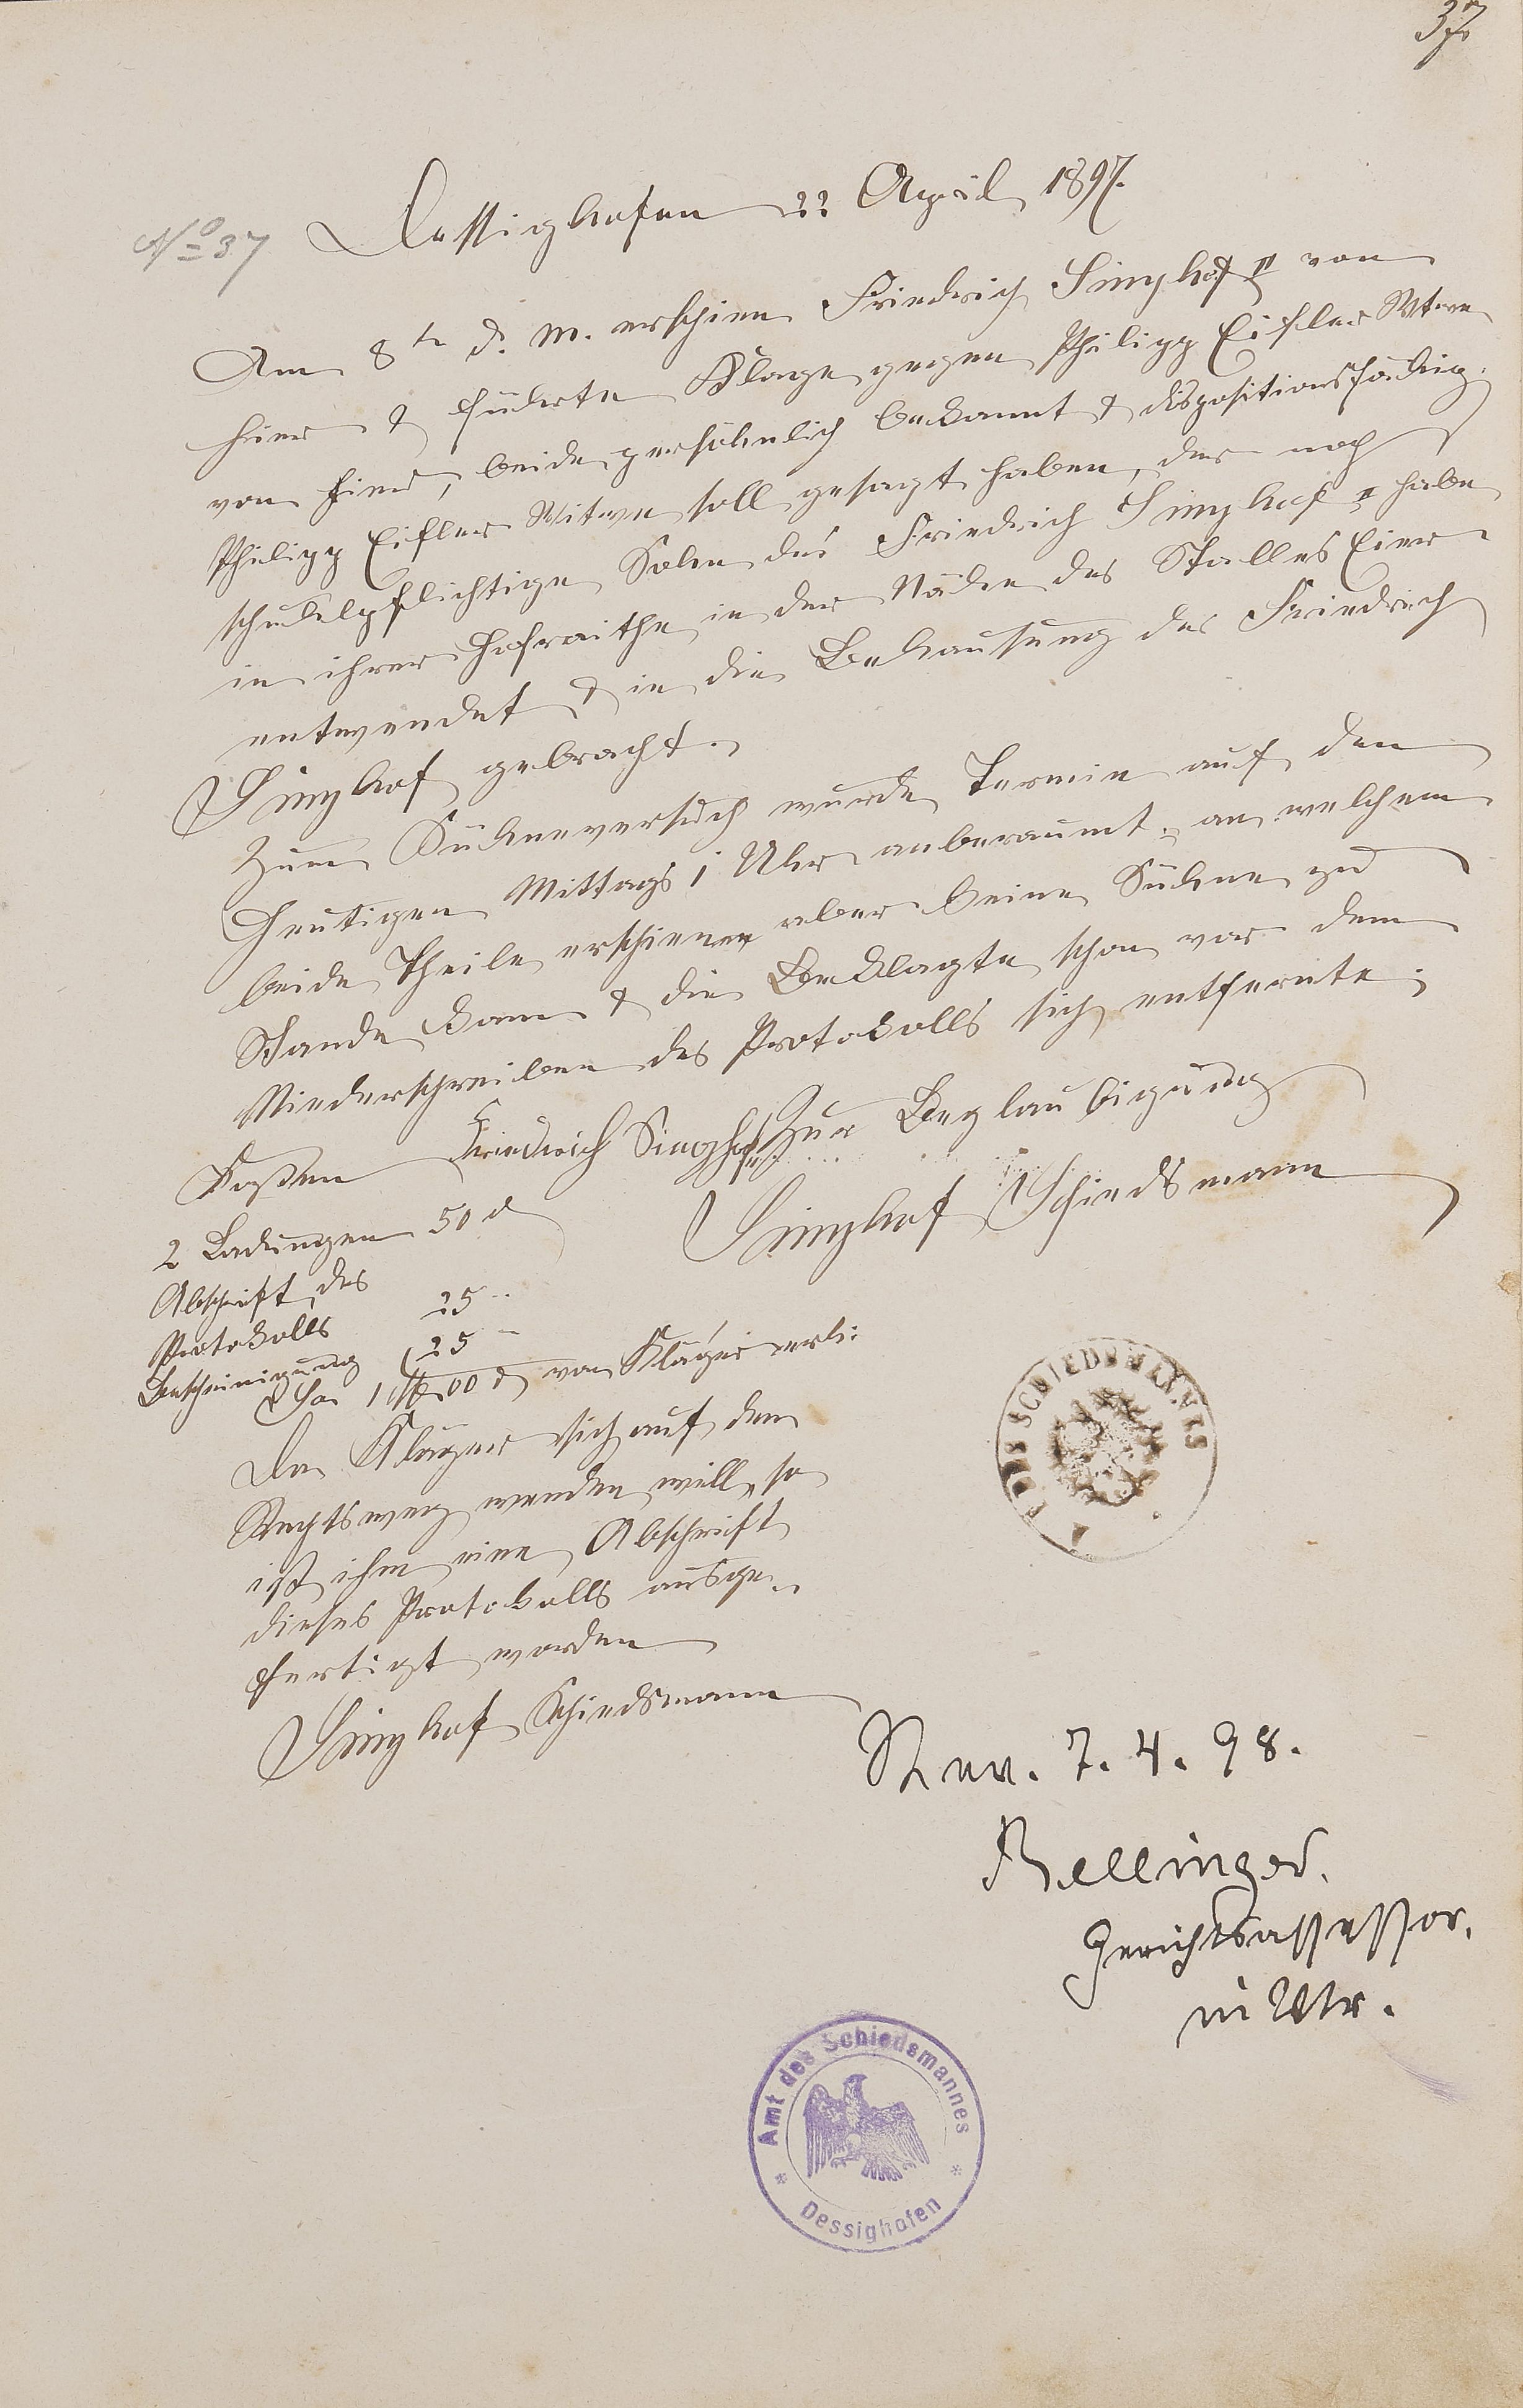 37.
No 37
Dessighofen 22 April 1897.
Am 8ten d. M. erschien Friedrich Singhof II von
hier & führte Klage gegen Philipp Eisler Wtwe
von hier, beide persöhnlich bekannt & dispositionsfähig.
Philipp Eisler Witwe soll gesagt haben, der noch
schuhlpflichtige Sohn des Friedrich Singhof II habe
in ihrer Hofraithe in der Nähe des Stalles Eier
entwendet & in die Behausung des Friedrich
Singhof gebracht.
Zum Sühneversuch wurde Termin auf den
Heutigen Mittags 1 Uhr anberaumt, an welchem
beide Theile erschienen aber keine Sühne zu
Stande kam & die Beklagte schon vor dem
Niederschreiben des Protokolls sich entfernte.
Friedrich Singhof Zur Beglaubigung
Singhof Schiedsmann
Kosten
2 Ladungen 50 d
Abschrift des
Protokolls 25 "
Bescheinigung 25 "
Sa. 1 M 00 d von Kläger erh:
Da Kläger sich auf den
Rechtsweg wenden will, so
ist ihm eine Abschrift
dieses Protokolls ausge-
fertigt worden
Singhof Schiedsmann
DES SCHIEDSMANNES
Rev. 7. 4. 98.
Bellinger.
Gerichtsassessor.
in Vtr.
Amt des Schiedsmannes
* Dessighofen *